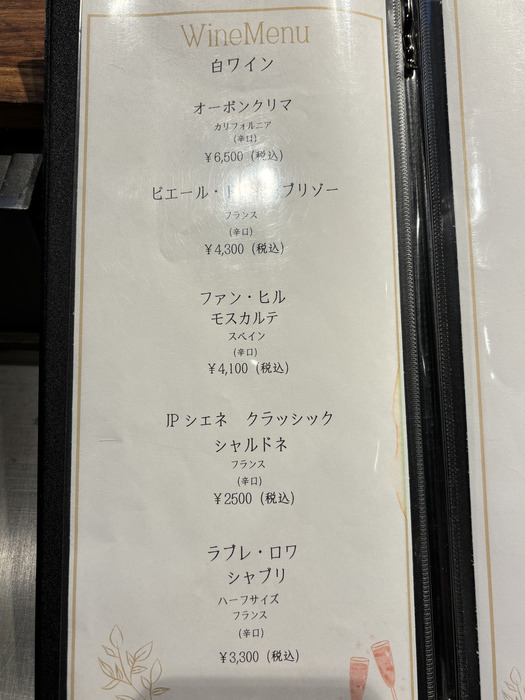 WineMenu
白ワイン
オーボンクリマ
カリフォルニア
(辛口)
￥6,500 (税込)
ピエール・ブリゾー
フランス
(辛口)
￥4,300 (税込)
ファン・ヒル
モスカルテ
スペイン
(辛口)
￥4,100 (税込)
JPシェネ クラッシック
シャルドネ
フランス
(辛口)
￥2500 (税込)
ラブレ・ロワ
シャブリ
ハーフサイズ
フランス
(辛口)
￥3,300 (税込)